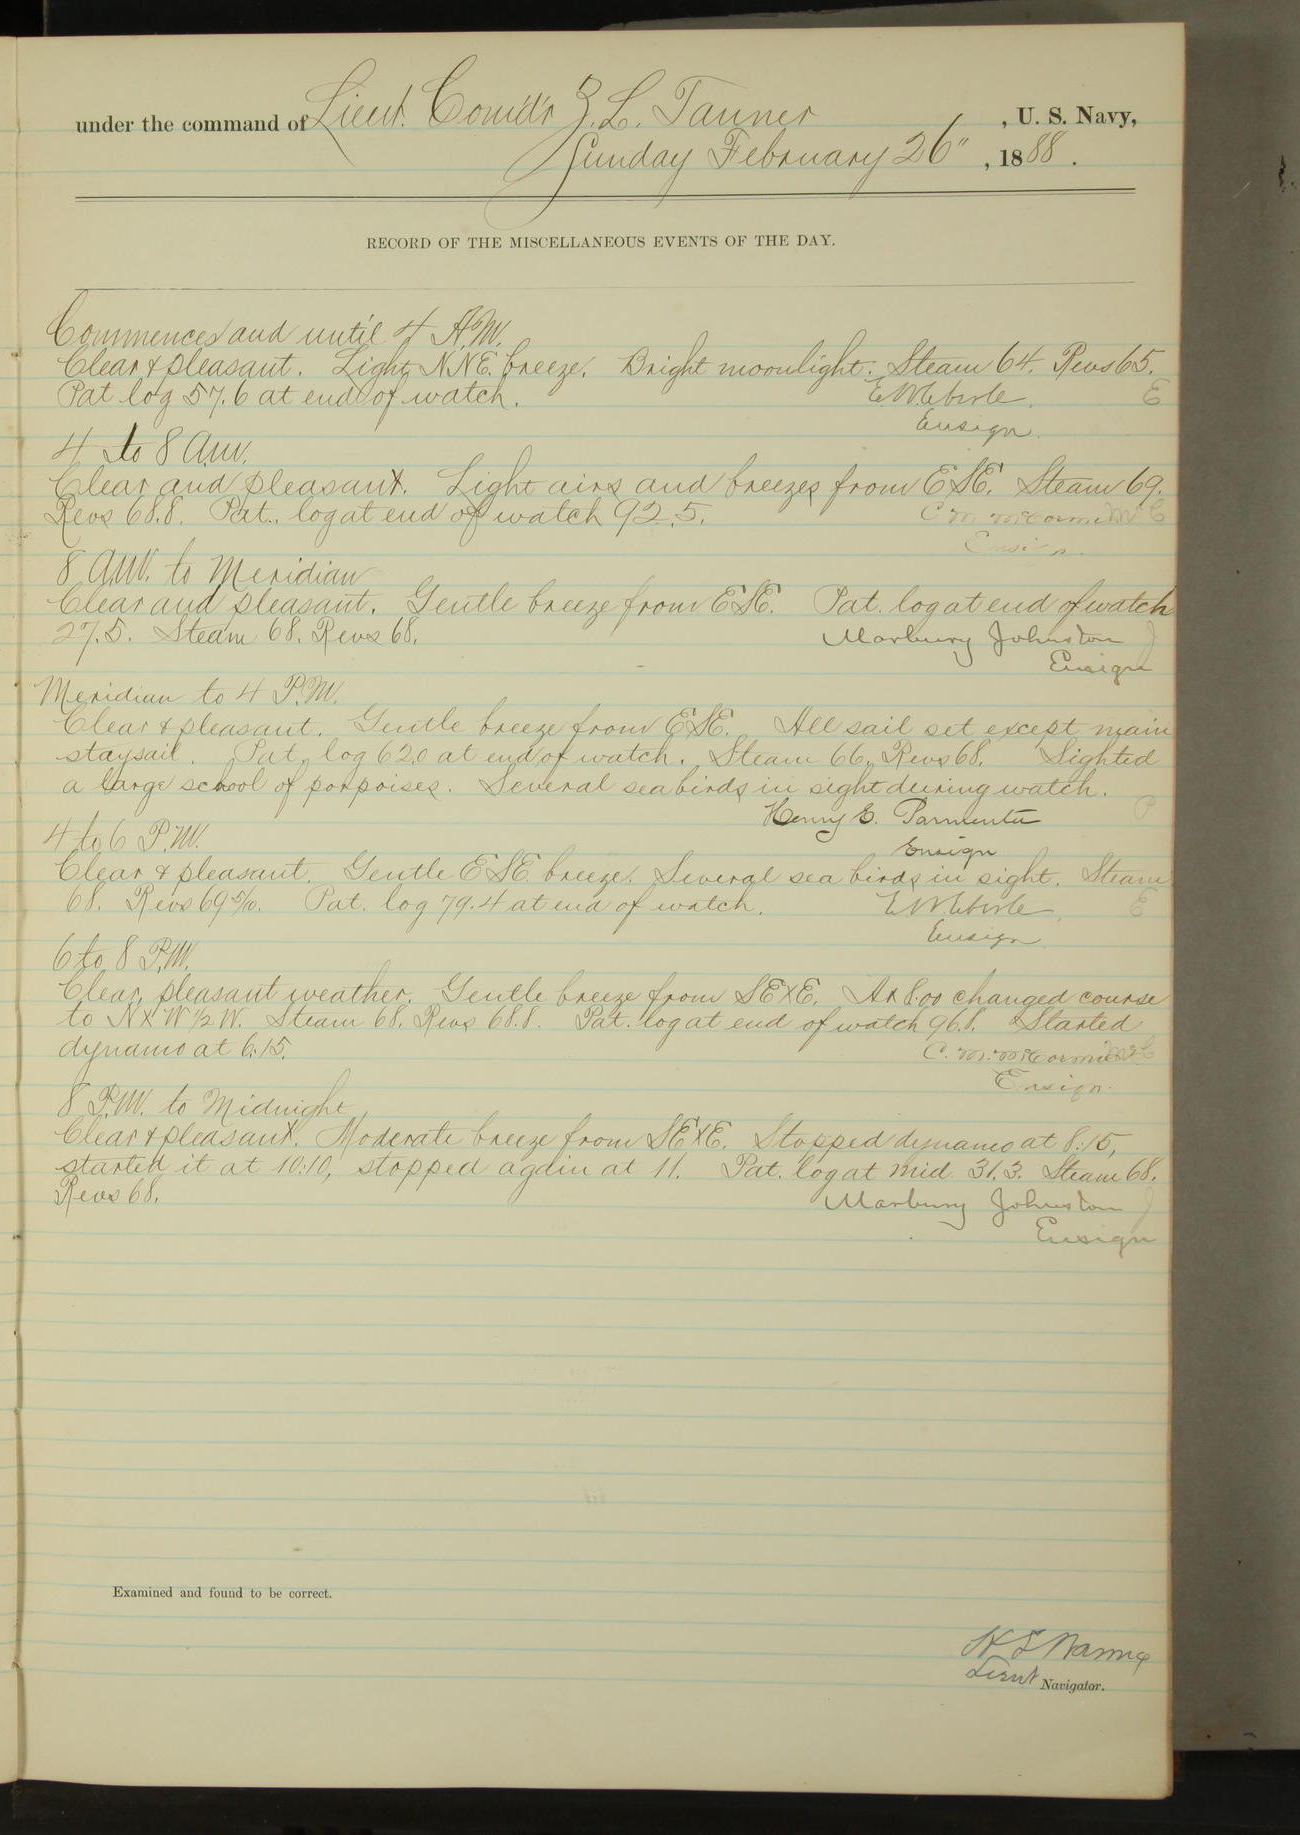 under the command of Lieut. Comd'r Z. L. Tanner, U. S. Navy,
Sunday February 26", 1888.
RECORD OF THE MISCELLANEOUS EVENTS OF THE DAY.
Commences and until 4 A.M.
Clear & pleasant. Light NNE. breeze. Bright moonlight. Steam 64. Revs 65.
Pat log 57.6 at end of watch. E. W. Eberle. E
Ensign.
4 to 8 A.M.
Clear and pleasant. Light airs and breezes from ESE. Steam 69.
Revs 68.8. Pat. log at end of watch 92.5. C. M. McCormick McC
Ensign.
8 A.M. to Meridian
Clear and pleasant. Gentle breeze from ESE. Pat. log at end of watch
27.5. Steam 68. Revs 68. Marbury Johnston J
Ensign
Meridian to 4 P.M.
Clear & pleasant. Gentle breeze from ESE. All sail set except main
staysail. Pat. log 62.0 at end of watch. Steam 66. Revs 68. Sighted
a large school of porpoises. Several sea birds in sight during watch.
Henry E. Parmenter P
Ensign
4 to 6 P.M.
Clear & pleasant. Gentle ESE breeze. Several sea birds in sight. Steam
68. Revs 69 5/10. Pat. log 79.4 at end of watch. E W Eberle, E
Ensign
6 to 8 P.M.
Clear, pleasant weather. Gentle breeze from SExE. At 8.00 changed course
to NxW 1/2 W. Steam 68. Revs 68.8. Pat. log at end of watch 96.8. Started
dynamo at 6.15. C. M. McCormick McC
Ensign.
8 P.M. to Midnight
Clear & pleasant. Moderate breeze from SExE. Stopped dynamo at 8:15,
started it at 10:10, stopped again at 11. Pat. log at mid 31.3. Steam 68.
Revs 68. Marbury Johnston J
Ensign
Examined and found to be correct.
Lieut Navigator.